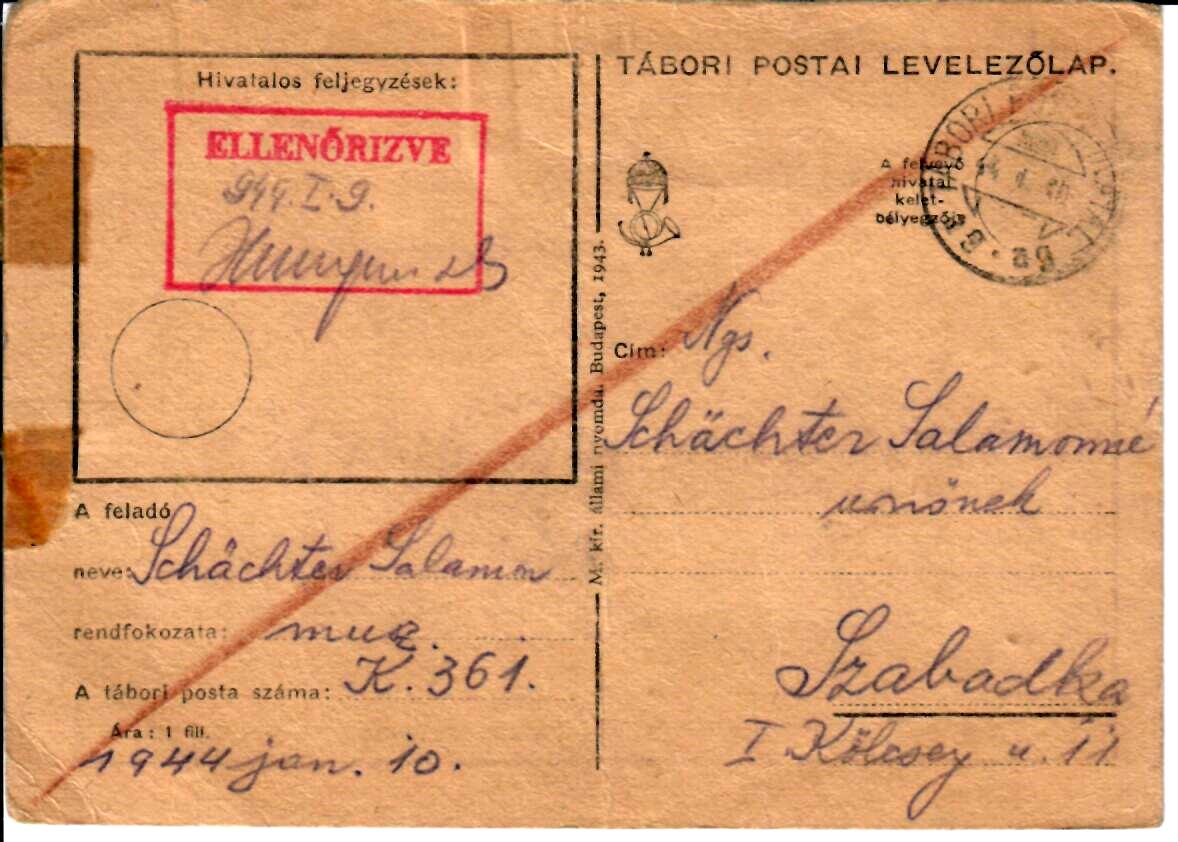 Hivatalos feljegyzések:
ELLENŐRIZVE
944. I. 9.
A feladó
neve: Schächter Salamon
rendfokozata: musz.
A tábori posta száma: K. 361.
Ára: 1 fill.
1944 jan. 10.
M. kir. állami nyomda. Budapest, 1943.
TÁBORI POSTAI LEVELEZŐLAP.
A felvevő
hivatal
kelet-
bélyegzője
TÁBORI
Cím: Ngs.
Schächter Salamonné
urnőnek
Szabadka
I Kölcsey u. 11